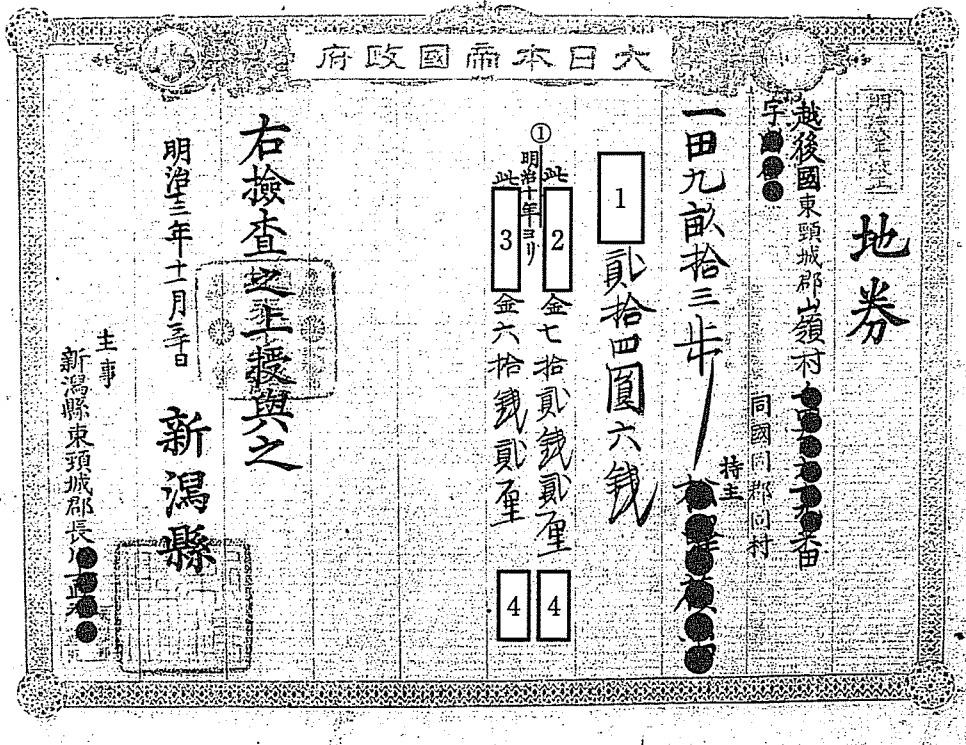 大日本帝國政府
地券
越後國東頸城郡嶺村
番
字
同國同郡同村
持主
一田九畝拾三歩
1
貳拾四圓六錢
①
此
2
金七拾貳錢貳厘
4
明治十年ヨリ
此
3
金六拾錢貳厘
4
右檢査之上授與之
明治十三年十一月三十日
新潟縣
主事
新潟縣東頸城郡長